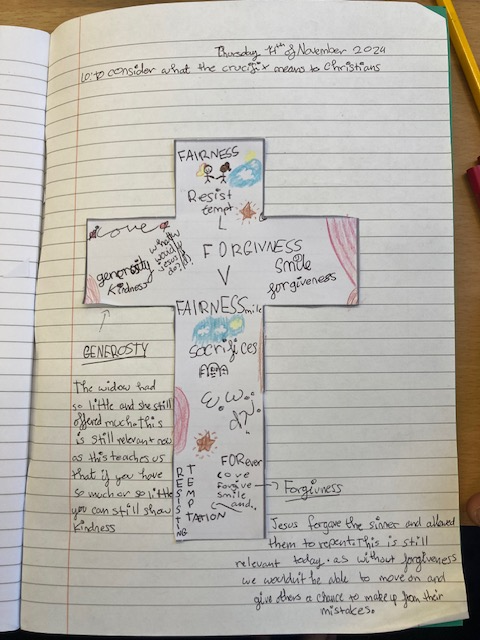 Thursday 14th of November 2024
LO: to consider what the crucifix means to Christians
FAIRNESS
Resist
tempt
L
Love
what
would
Jesus
do?
FORGIVNESS
generosity
Kindness
V
Smile
forgiveness
FAIRNESS smile
sacrifices
GENEROSTY
The widow had
so little and she still
offered much. This
is still relevant now
as this teaches us
that if you have
so much or so little
you can still show
kindness
d?
FORever
Love
Forgive
Smile
and
RESISTING
TEMPTATION
Forgivness
Jesus forgave the sinner and allowed
them to repent. This is still
relevant today. as without forgiveness
we wouldn't be able to move on and
give others a chance to make up from their
mistakes.